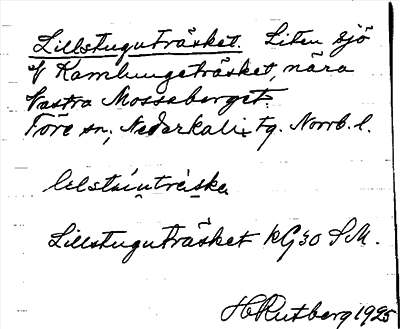 Lillstuguträsket. Liten sjö
V Kamlungeträsket, nära
Västra Mossaberget.
Töre sn, Nederkalix tg. Norrb. l.
lilstùuträska
Lillstuguträsket kG30 S.M.
H Rutberg 1925